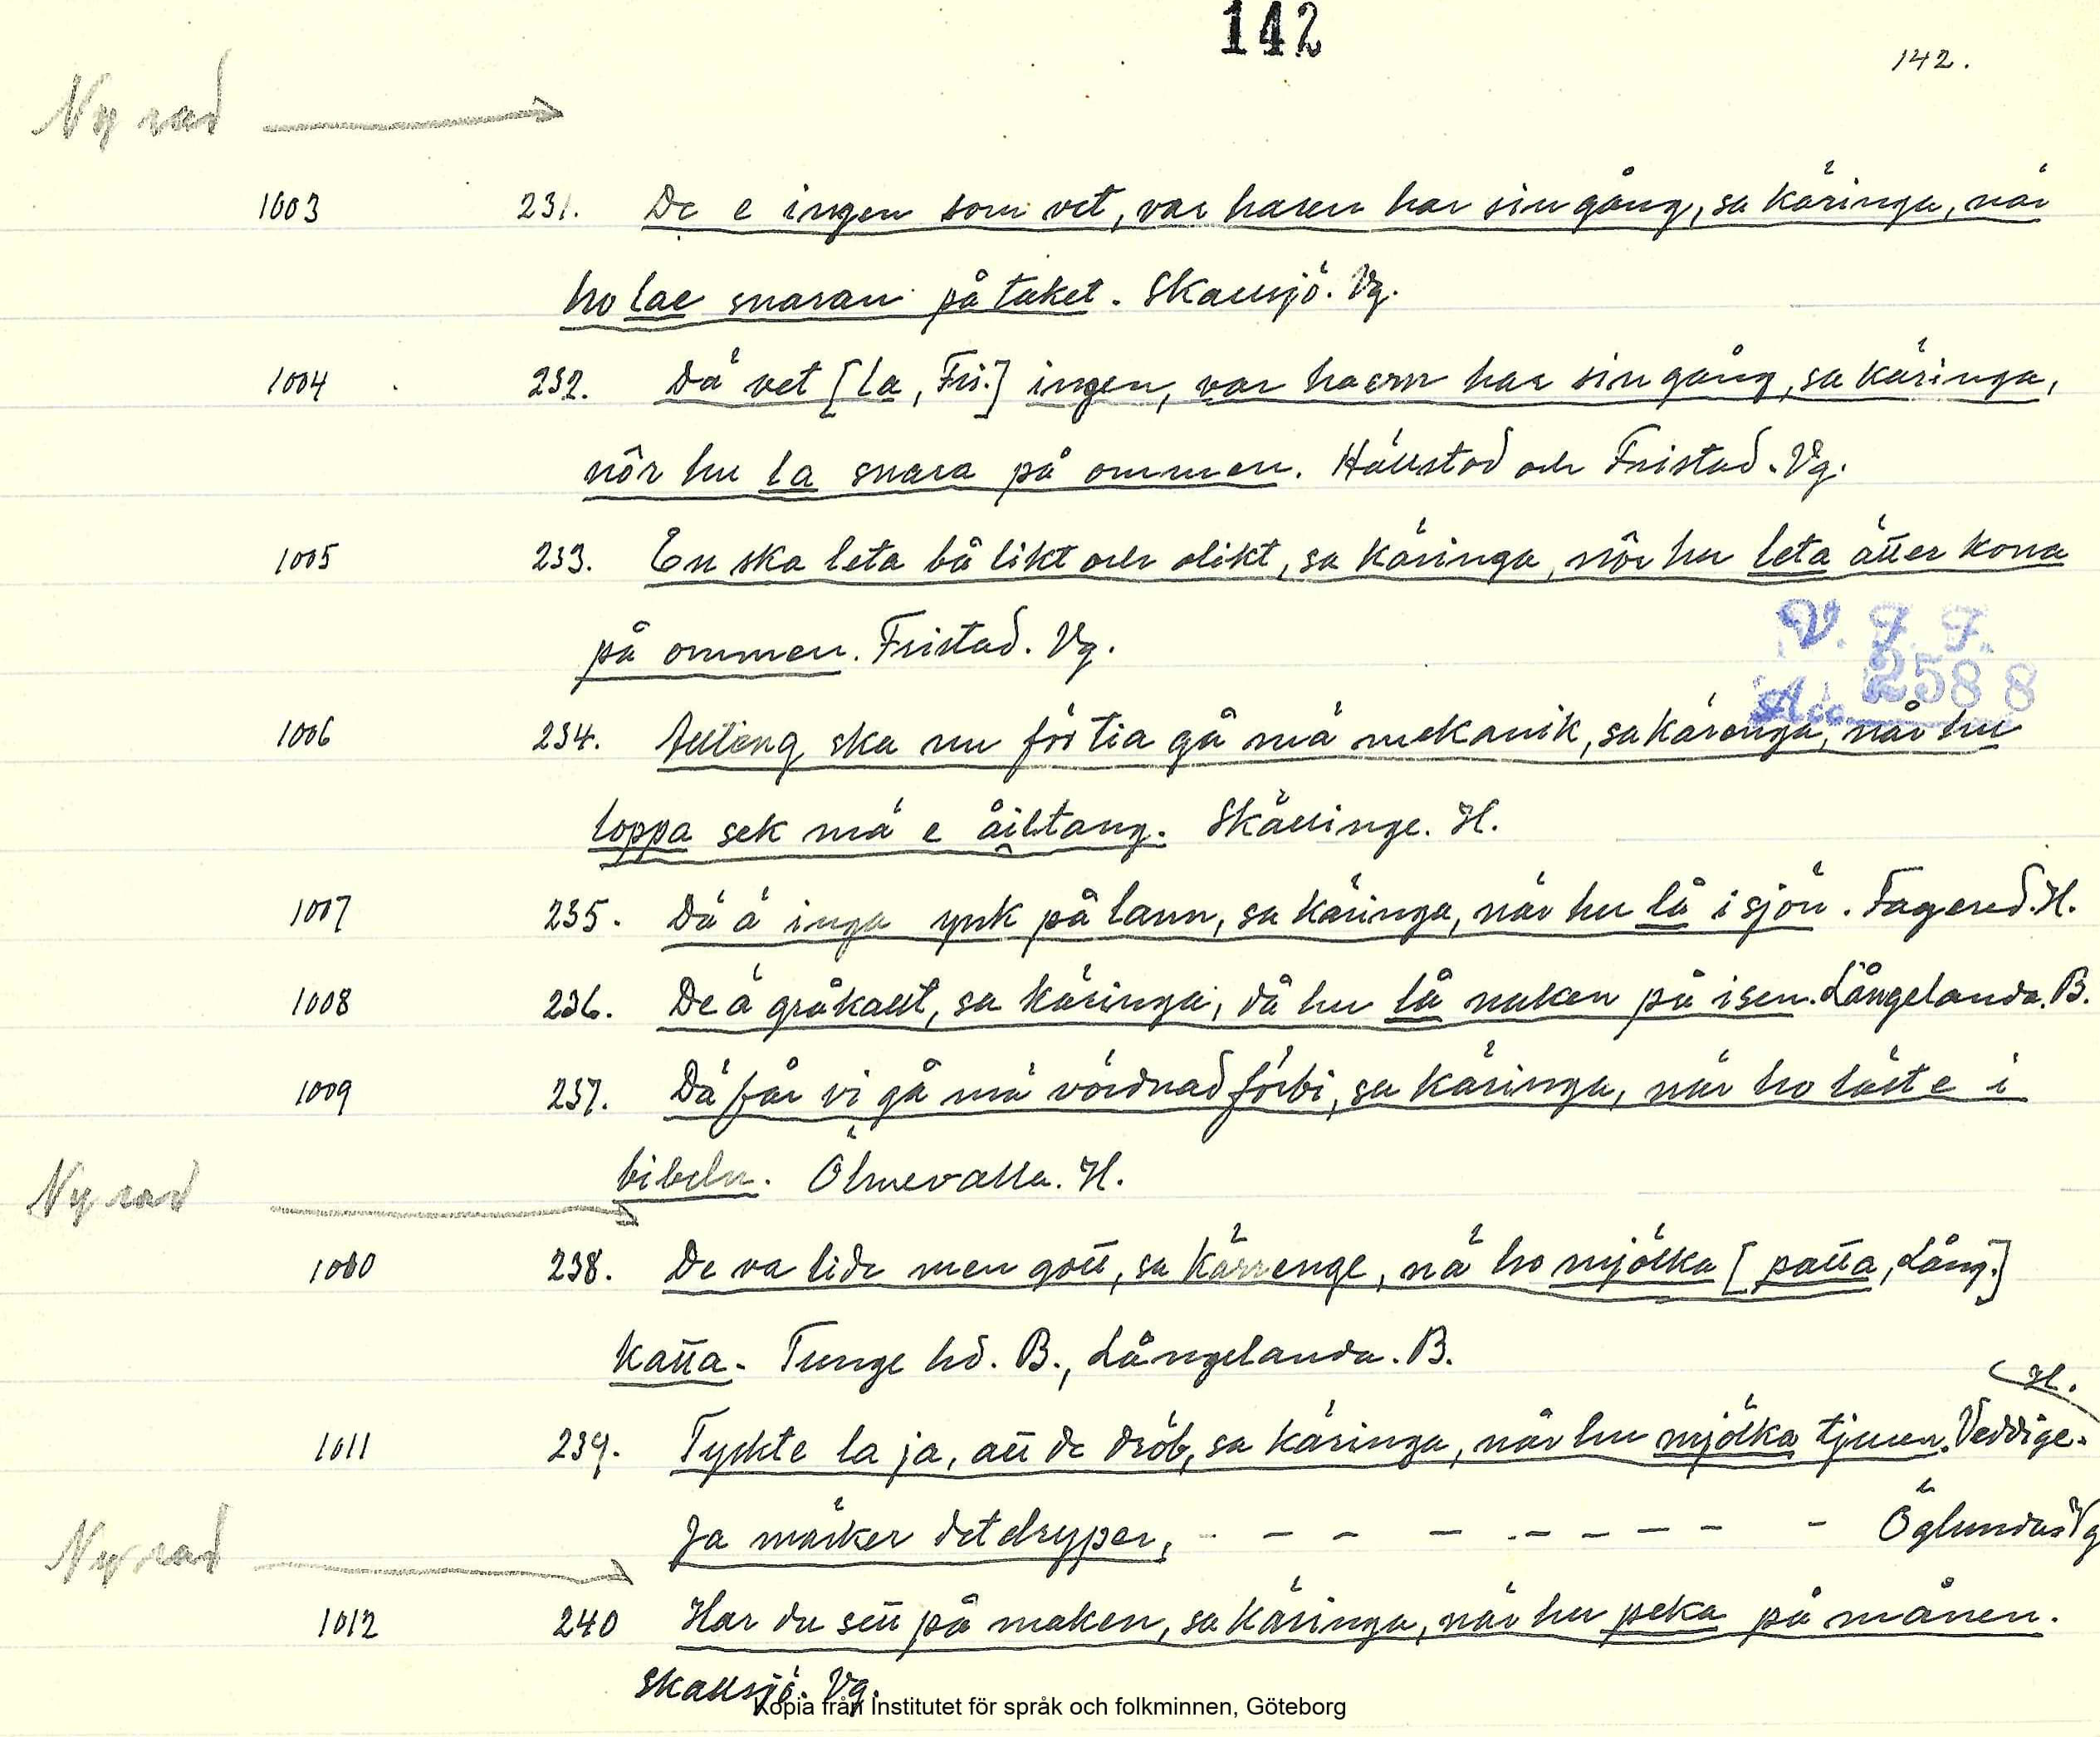 142
142.
Ny rad
1003 231. De e ingen som vet, var haren har sin gång, sa käringa, när
ho lae snaran på taket. Skallsjö. Vg.
1004 232. Dä vet [la, Fri.] ingen, var haern har sin gång, sa käringa,
nôr hu la snara på ommen. Hällstad och Fristad. Vg.
1005 233. En ska leta bå likt och olikt, sa käringa, nôr hu leta ätter kona
på ommen. Fristad. Vg.
V. F. F.
Acc. 2588
1006 234. Allting ska nu för tia gå mä mekanik, sa kärenga, när hu
loppa sek mä e åiltang. Skällinge. H.
1007 235. Dä ä inga ynk på lann, sa käringa, när hu lå i sjön. Fagered. H.
1008 236. De ä gråkallt, sa käringa, då hu lå naken på isen. Långelanda. B.
1009 237. Dä får vi gå mä vördnad förbi, sa käringa, när ho läste i
bibeln. Ölmevalla. H.
Ny rad
1010 238. De va lide men gott, sa kärrenge, nä ho mjölka [patta, Lång.]
katta. Tunge hd. B., Långelanda. B.
H.
1011 239. Tyckte la ja, att de dröb, sa käringa, när hu mjölka tjuren. Veddige.
Ja märker det dryper, - - - - - - - - - Öglunda. Vg
Ny rad
1012 240 Har du sett på maken, sa käringa, när hu peka på månen.
Skallsjö. Vg.
Kopia från Institutet för språk och folkminnen, Göteborg